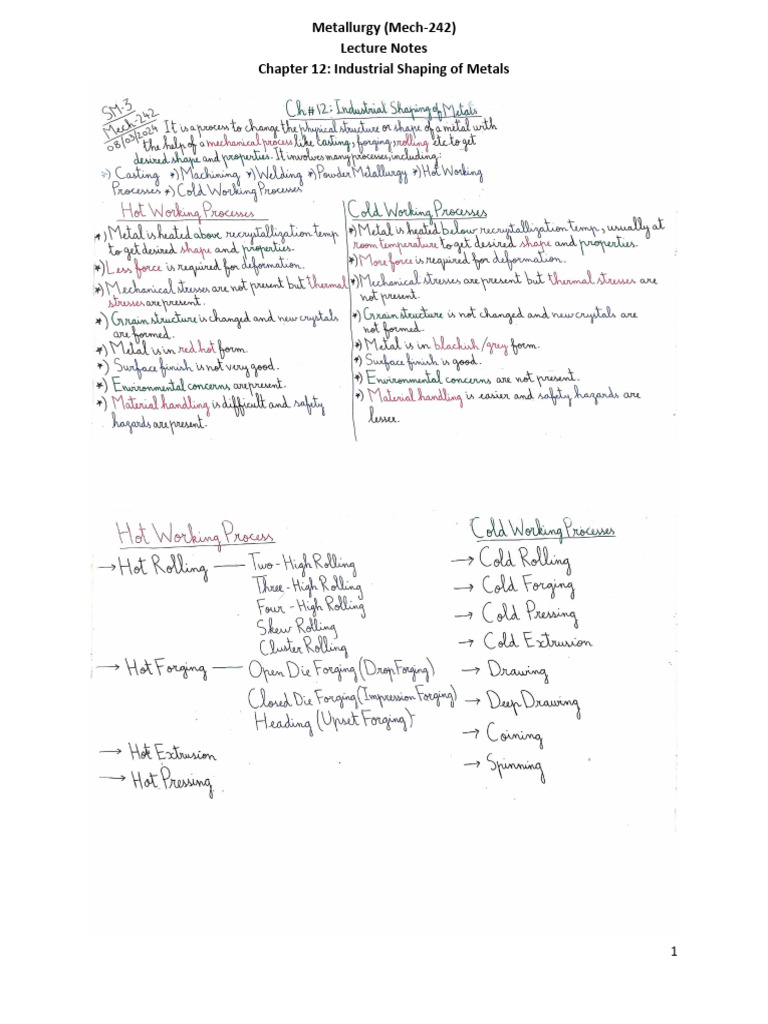 Metallurgy (Mech-242)
Lecture Notes
Chapter 12: Industrial Shaping of Metals
SM-3
Mech-242
08/03/2024
Ch#12: Industrial Shaping of Metals
It is a process to change the physical structure or shape of a metal with
the help of a mechanical process like casting, forging, rolling etc to get
desired shape and properties. It involves many processes, including:
*) Casting *) Machining *) Welding *) Powder Metallurgy *) Hot Working
Processes *) Cold Working Processes
Hot Working Processes
*) Metal is heated above recrystallization temp
to get desired shape and properties.
*) Less force is required for deformation.
*) Mechanical stresses are not present but thermal
stresses are present.
*) Grain structure is changed and new crystals
are formed.
*) Metal is in red hot form.
*) Surface finish is not very good.
*) Environmental concerns are present.
*) Material handling is difficult and safety
hazards are present.
Cold Working Processes
*) Metal is heated below recrystallization temp, usually at
room temperature to get desired shape and properties.
*) More force is required for deformation.
*) Mechanical stresses are present but thermal stresses are
not present.
*) Grain structure is not changed and new crystals are
not formed.
*) Metal is in blackish/grey form.
*) Surface finish is good.
*) Environmental concerns are not present.
*) Material handling is easier and safety hazards are
lesser.
Hot Working Process
→ Hot Rolling — Two-High Rolling
Three-High Rolling
Four-High Rolling
Skew Rolling
Cluster Rolling
→ Hot Forging — Open Die Forging (Drop Forging)
Closed Die Forging (Impression Forging)
Heading (Upset Forging)
→ Hot Extrusion
→ Hot Pressing
Cold Working Processes
→ Cold Rolling
→ Cold Forging
→ Cold Pressing
→ Cold Extrusion
→ Drawing
→ Deep Drawing
→ Coining
→ Spinning
1